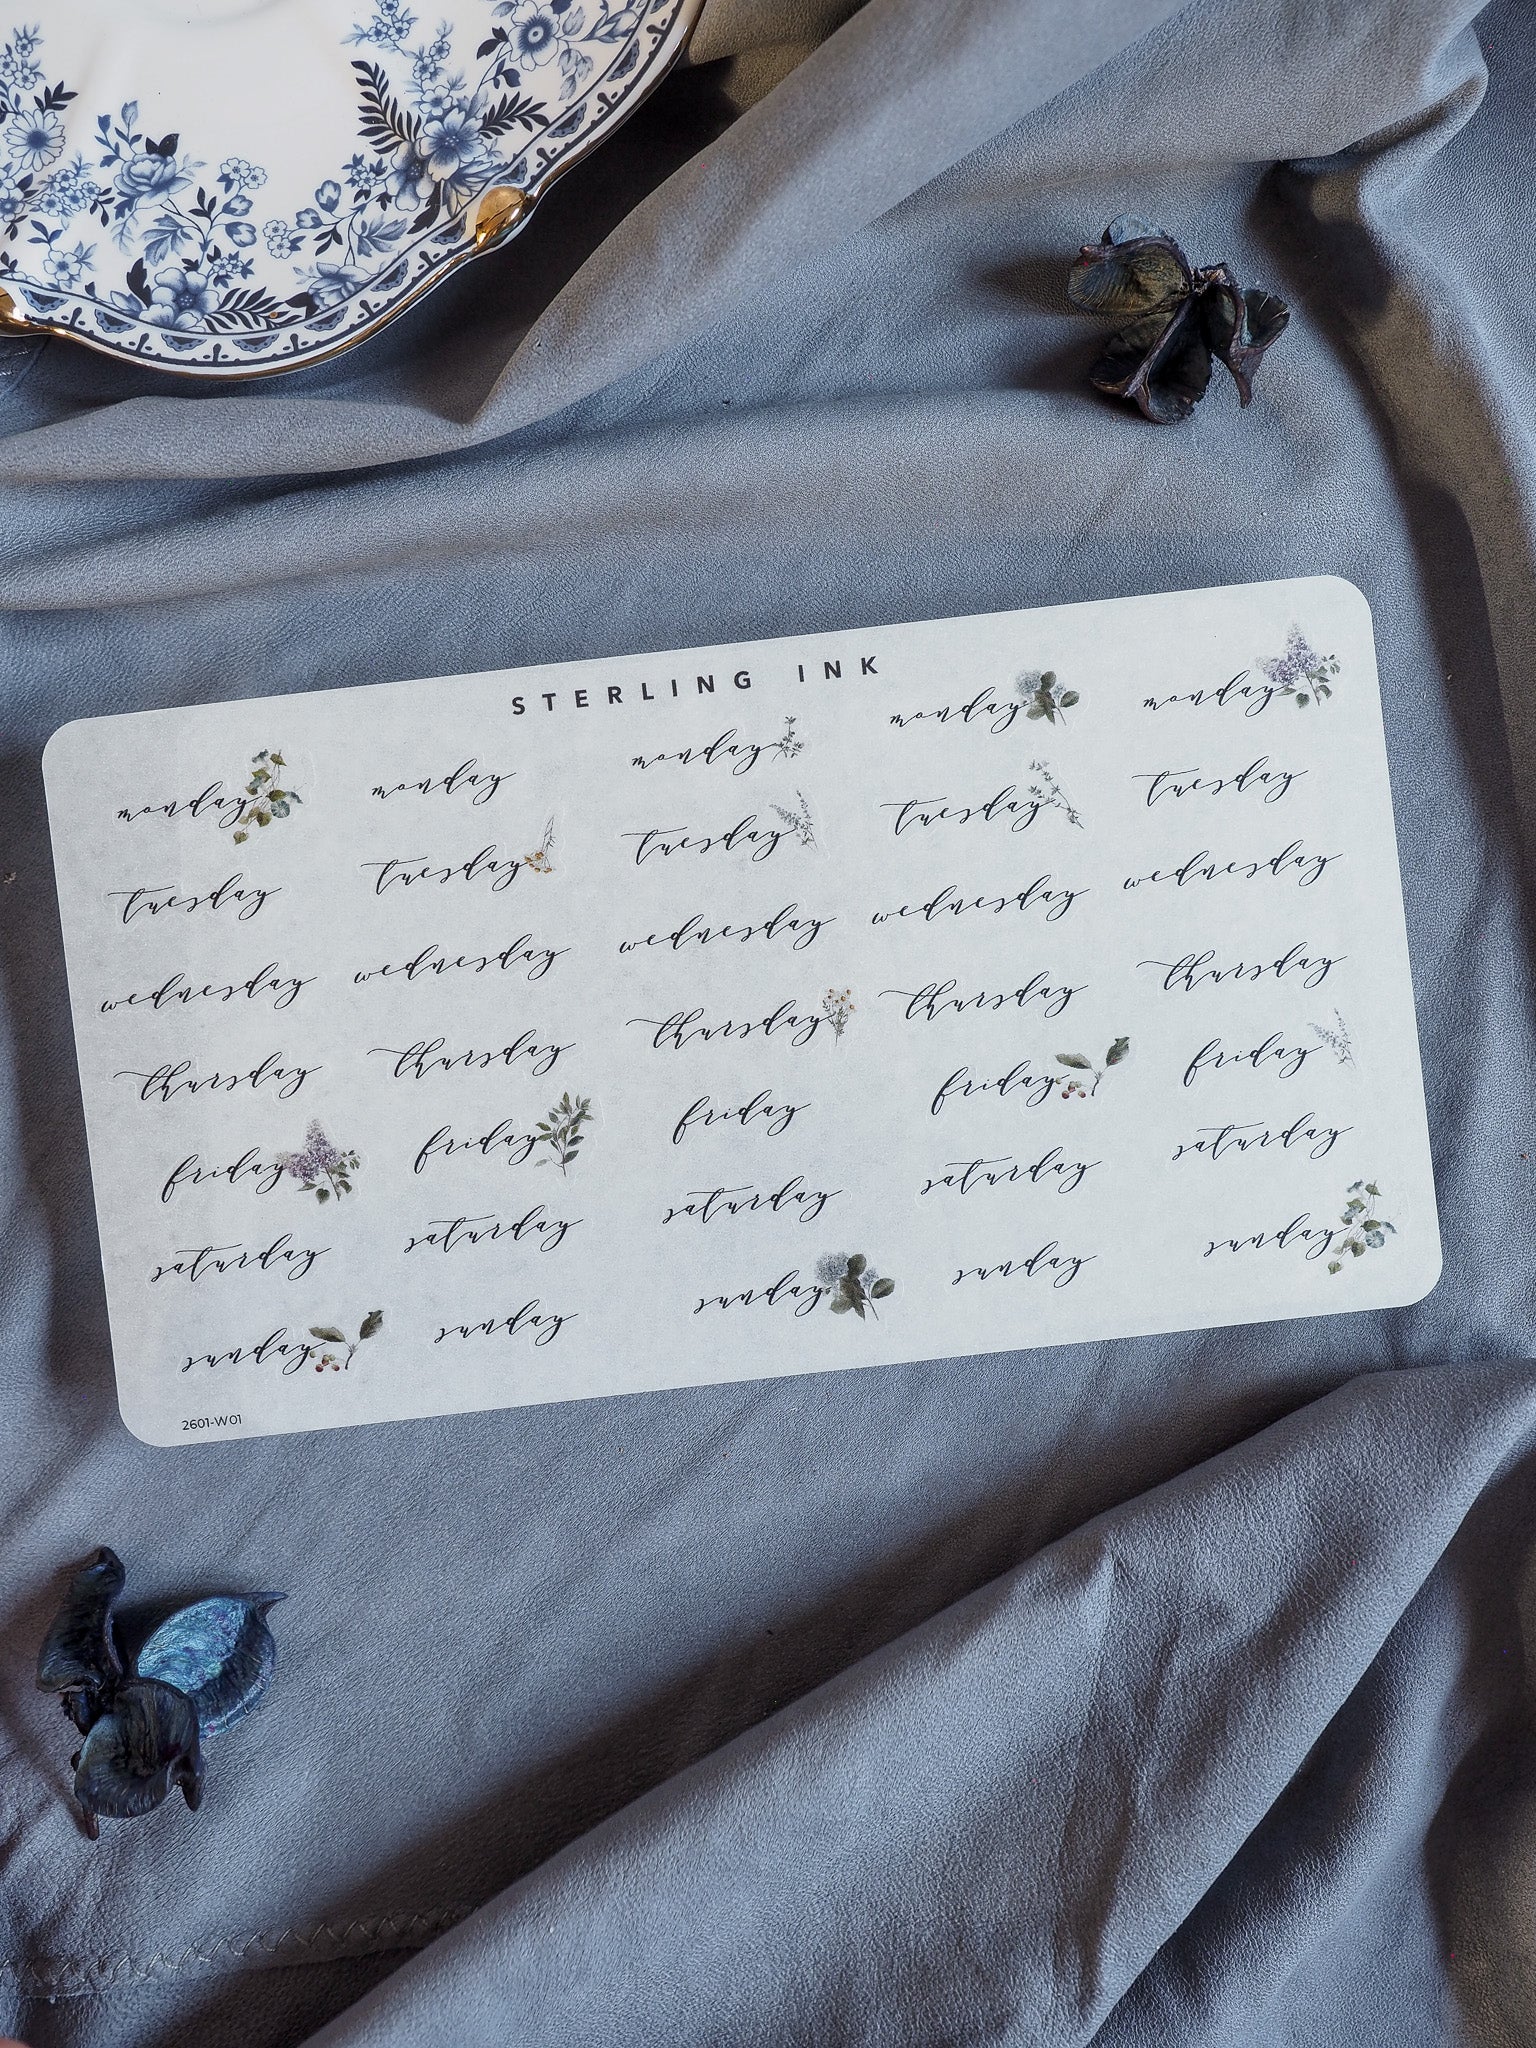 STERLING INK
monday monday monday monday monday
tuesday tuesday tuesday tuesday tuesday
wednesday wednesday wednesday wednesday wednesday
thursday thursday thursday thursday thursday
friday friday friday friday friday
saturday saturday saturday saturday saturday
sunday sunday sunday sunday sunday
2601-W01